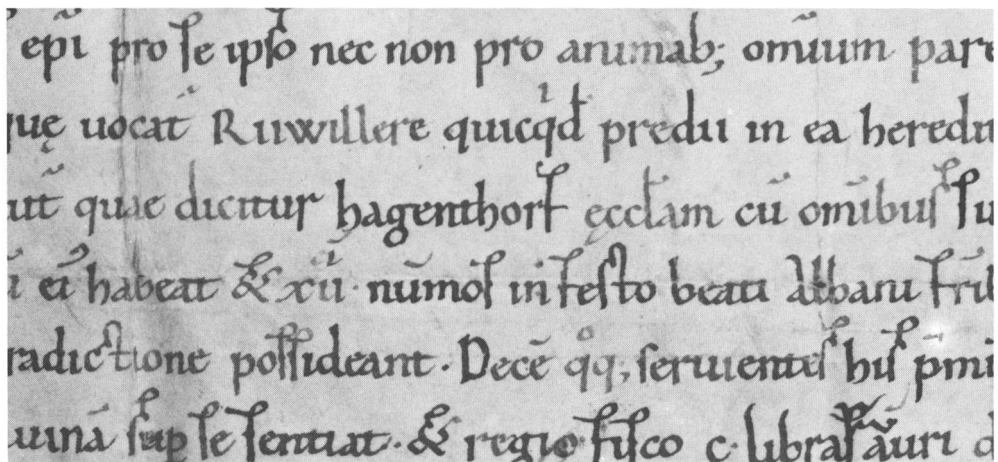 epi̅ pro se ipso nec non pro animab; om̅ium pare
quę uocat̅ Ruwillere quicq̇d predii in ea heredit
ut̅ quae dicitur hagenthorf ęccl̅am cu̅ om̅ibus su
ei̅ habeat & xii · nu̅mos in festo beati Albani fr̅ib
radictione possideant · Dece̅ qͦq; seruientes his p̅mi
uina̅ sup se sentiat · & regio fisco c · libras auri